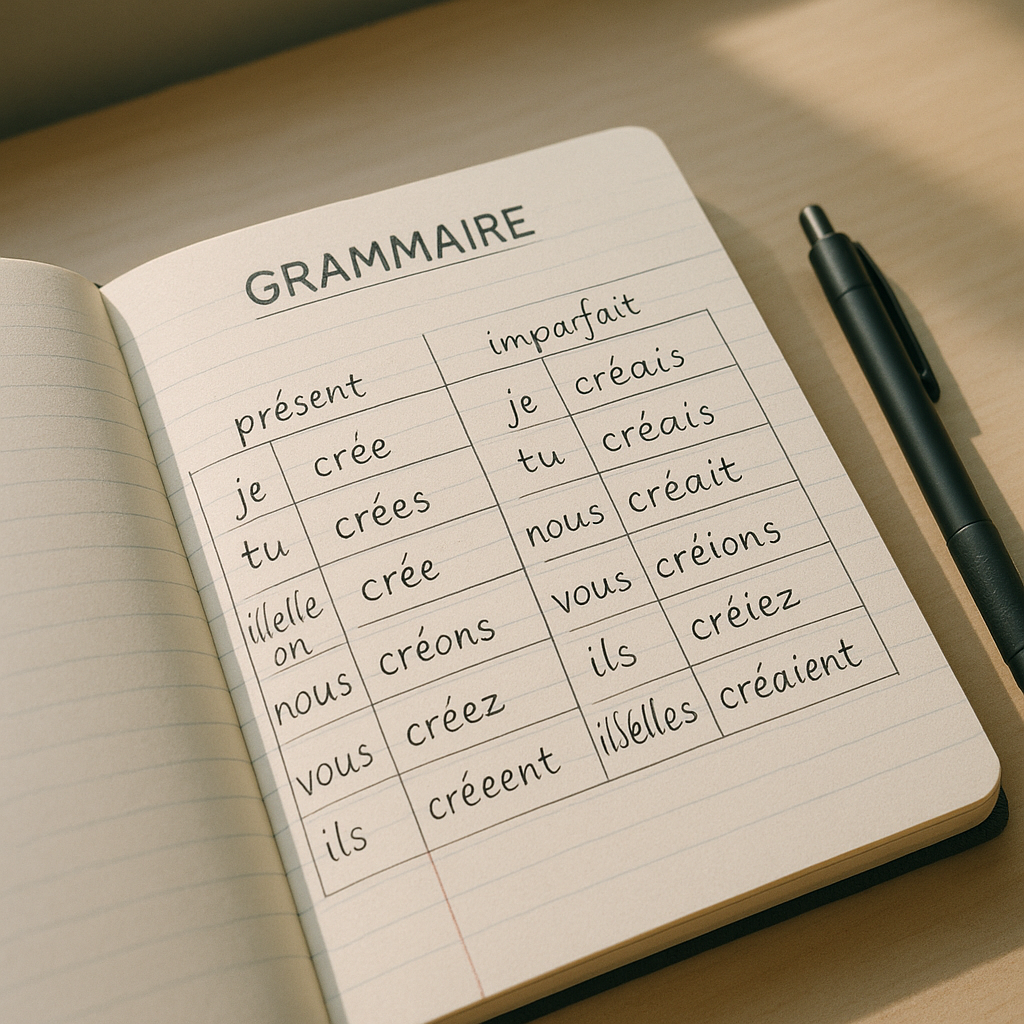 GRAMMAIRE
présent
je crée
tu crées
il/elle crée
on
nous créons
vous créez
ils créeent
imparfait
je créais
tu créais
nous créait
vous créions
ils créiez
créaient